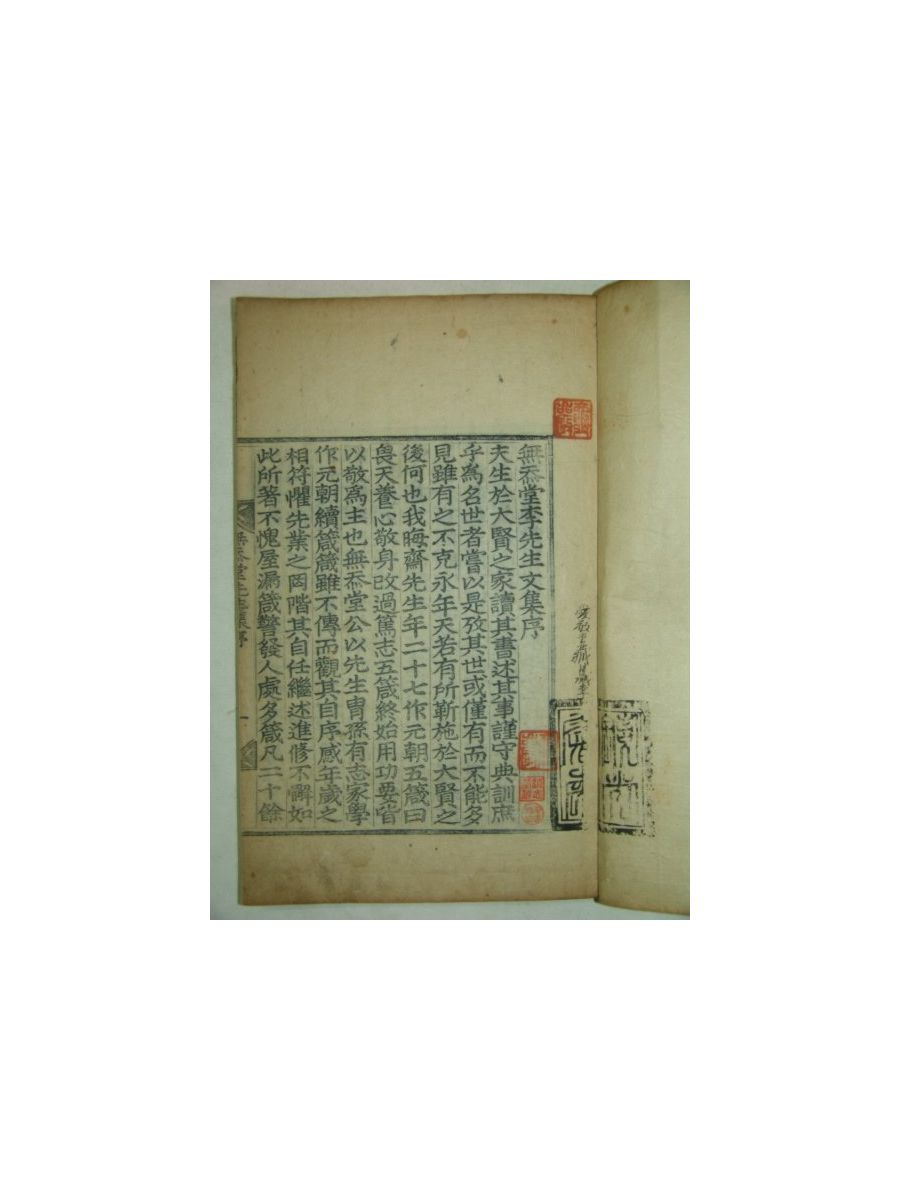 無忝堂李先生文集序
夫生於大賢之家讀其書述其事謹守典訓庶
乎為名世者嘗以是攷其世或僅有而不能多
見雖有之不克永年天若有所靳施於大賢之
後何也我晦齋先生年二十七作元朝五箴曰
畏天養心敬身改過篤志五箴終始用功要皆
以敬爲主也無忝堂公以先生胄孫有志家學
作元朝續箴箴雖不傳而觀其自序感年歲之
相符懼先業之罔階其自任繼述進修不懈如
此所著不愧屋漏箴警發人處多箴凡二十餘
無忝堂先生集序
一